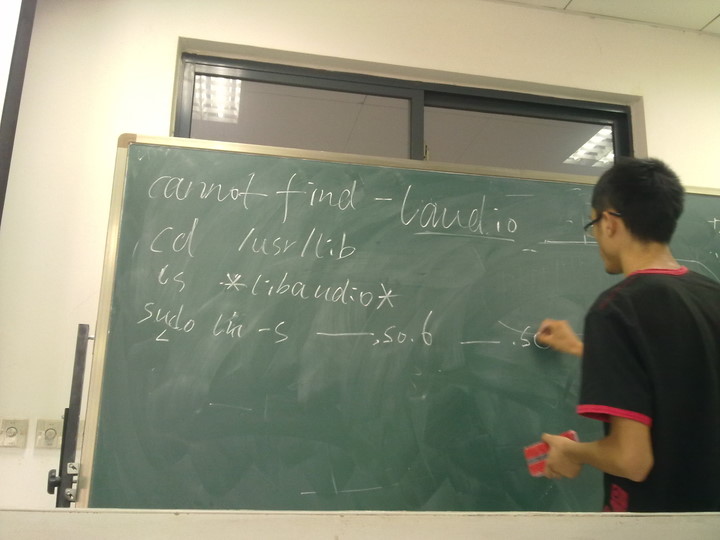 cannot find -laudio
cd /usr/lib
ls *libaudio*
sudo ln -s ___.so.6 ___.so